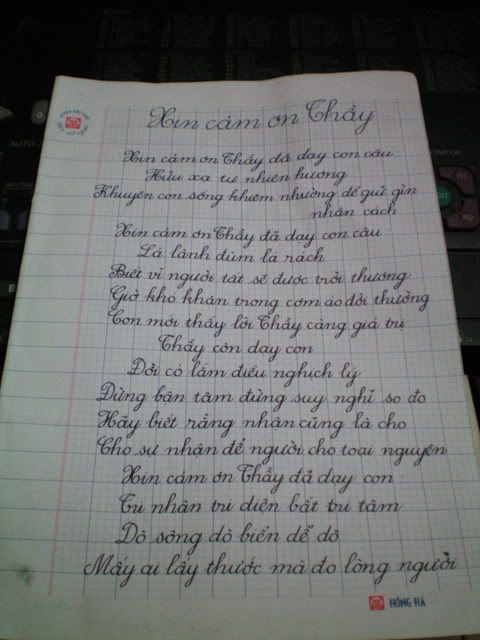 Xin cảm ơn Thầy
Xin cảm ơn Thầy đã dạy con câu
Hữu xạ tự nhiên hương
Khuyên con sống khiêm nhường để giữ gìn
nhân cách
Xin cảm ơn Thầy đã dạy con câu
Lá lành đùm lá rách
Biết vì người tất sẽ được trời thương
Giờ khó khăn trong cơm áo đời thường
Con mới thấy lời Thầy càng giá trị
Thầy còn dạy con
Đời có lắm điều nghịch lý
Đừng bận tâm đừng suy nghĩ so đo
Hãy biết rằng nhận cũng là cho
Cho sự nhận để người cho toại nguyện
Xin cảm ơn Thầy đã dạy con
Tri nhân tri diện bất tri tâm
Dò sông dò biển dễ dò
Mấy ai lấy thước mà đo lòng người
HỒNG HÀ